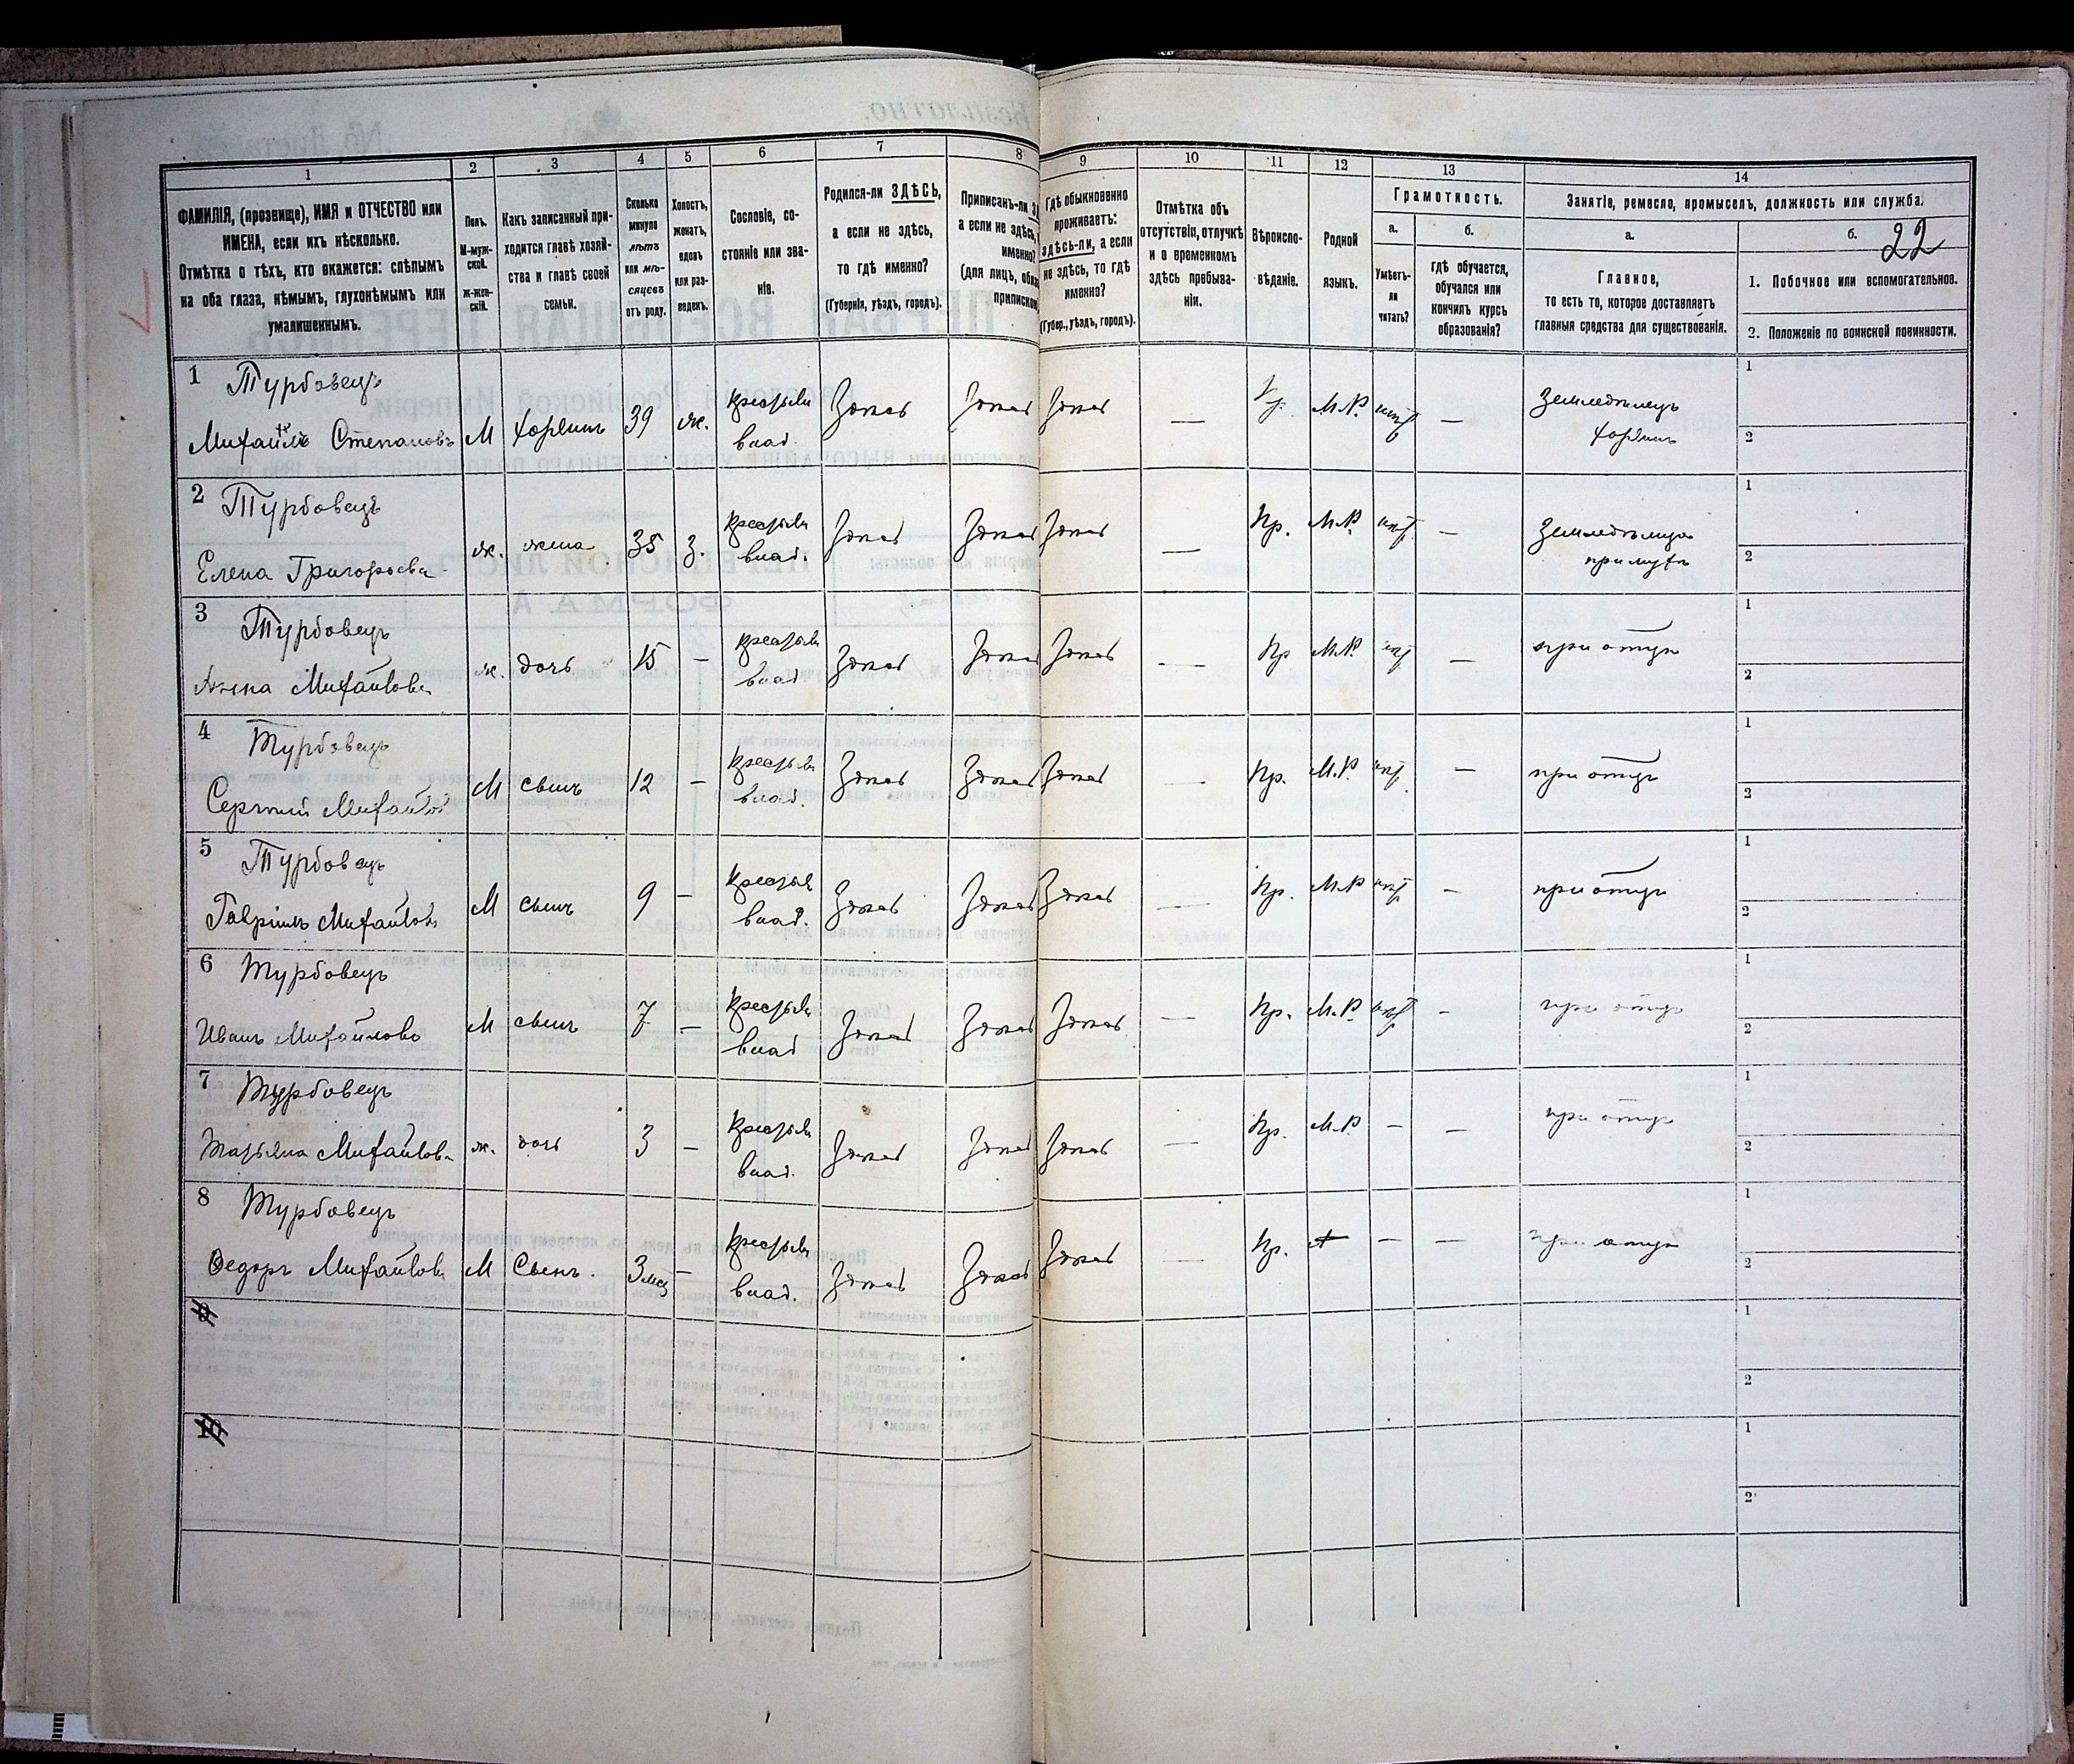 22
1
2
3
4
5
6
7
8
9
10
11
12
13
14
ФАМИЛІЯ, (прозвище), ИМЯ и ОТЧЕСТВО или
ИМЕНА, если ихъ нѣсколько.
Отмѣтка о тѣхъ, кто окажется: слѣпымъ
на оба глаза, нѣмымъ, глухонѣмымъ или
умалишеннымъ.
Полъ.
М-муж-
ской.
ж-жен-
скій.
Какъ записанный при-
ходится главѣ хозяй-
ства и главѣ своей
семьи.
Сколько
минуло
лѣтъ
или мѣ-
сяцевъ
отъ роду.
Холостъ,
женатъ,
вдовъ
или раз-
веденъ.
Сословіе, со-
стояніе или зва-
ніе.
Родился-ли ЗДѢСЬ,
а если не здѣсь,
то гдѣ именно?
(Губернія, уѣздъ, городъ).
Приписанъ-ли
а если не здѣсь,
именно?
(для лицъ,
Гдѣ обыкновенно
проживаетъ:
здѣсь-ли, а если
не здѣсь, то гдѣ
именно?
(Губер., уѣздъ, городъ).
Отмѣтка объ
отсутствіи, отлучкѣ
и о временномъ
здѣсь пребыва-
ніи.
Вѣроиспо-
вѣданіе.
Родной
языкъ.
Грамотность.
а.
Умѣетъ-
ли
читать?
б.
гдѣ обучается,
обучался или
кончилъ курсъ
образованія?
Занятіе, ремесло, промыселъ, должность или служба.
а.
Главное,
то есть то, которое доставляетъ
главныя средства для существованія.
б.
1. Побочное или вспомогательное.
2. Положеніе по воинской повинности.
1 Турбовецъ
Михаилъ Степановъ М хозяинъ 39 ж. крестьян влад. Здесь Здесь Здесь — Пр. М.Р. нѣт — Земледѣлецъ хозяинъ 1 2
2 Турбовецъ
Елена Григорьева ж. жена 35 З. крестьян влад. Здесь Здесь Здесь — Пр. М.Р. нѣт — 1 2
3 Турбовецъ
Анна Михайлова ж. дочь 15 — крестьян влад. Здесь Здесь Здесь — Пр М.Р. нѣт — при отцѣ 1 2
4 Турбовецъ
Сергѣй Михайлов М сынъ 12 — крестьян влад. Здесь Здесь Здесь — Пр. М.Р. нѣт — при отцѣ 1 2
5 Турбовецъ
Гавріилъ Михайловъ М сынъ 9 — крестьян влад. Здесь Здесь Здесь — Пр. М.Р нѣт — при отцѣ 1 2
6 Турбовецъ
Иванъ Михайловъ М сынъ 7 — крестьян влад Здесь Здесь Здесь — Пр. М.Р нѣт - при отцѣ 1 2
7 Турбовецъ
Татьяна Михайлова ж. дочь 3 — крестьян влад. Здесь Здесь Здесь — Пр. М.Р — — при отцѣ 1 2
8 Турбовецъ
Ѳедоръ Михайловъ М Сынъ. 3 мѣс — крестьян влад. Здесь Здесь Здесь — Пр. — — при отцѣ 1 2
9 1 2
10 1 2